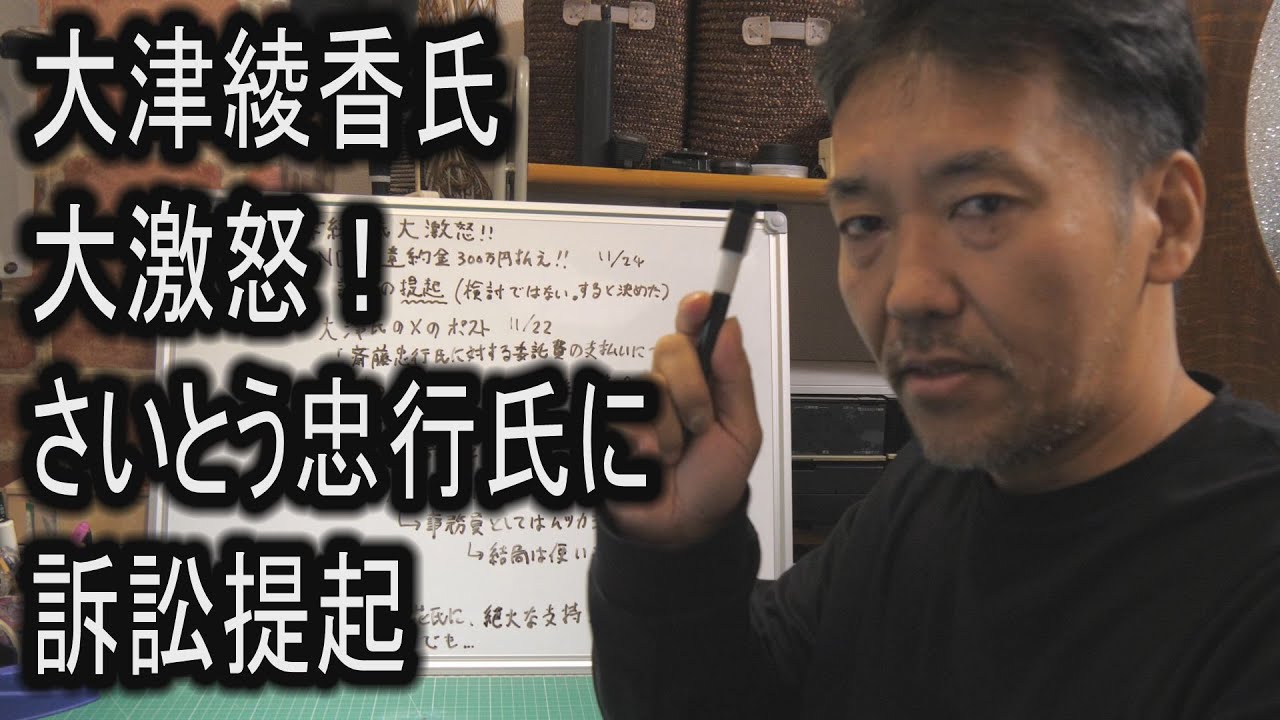 大津綾香氏
大激怒！
さいとう忠行氏に
訴訟提起
大激怒!!
違約金300万円払え!! 11/24
の提起(検討ではない。すると決めた)
大津氏のXのポスト 11/22
斉藤忠行氏に対する委託費の支払いに
↳事務員としてはムツカ
↳結局は使い
氏に、絶大な支持
でも...